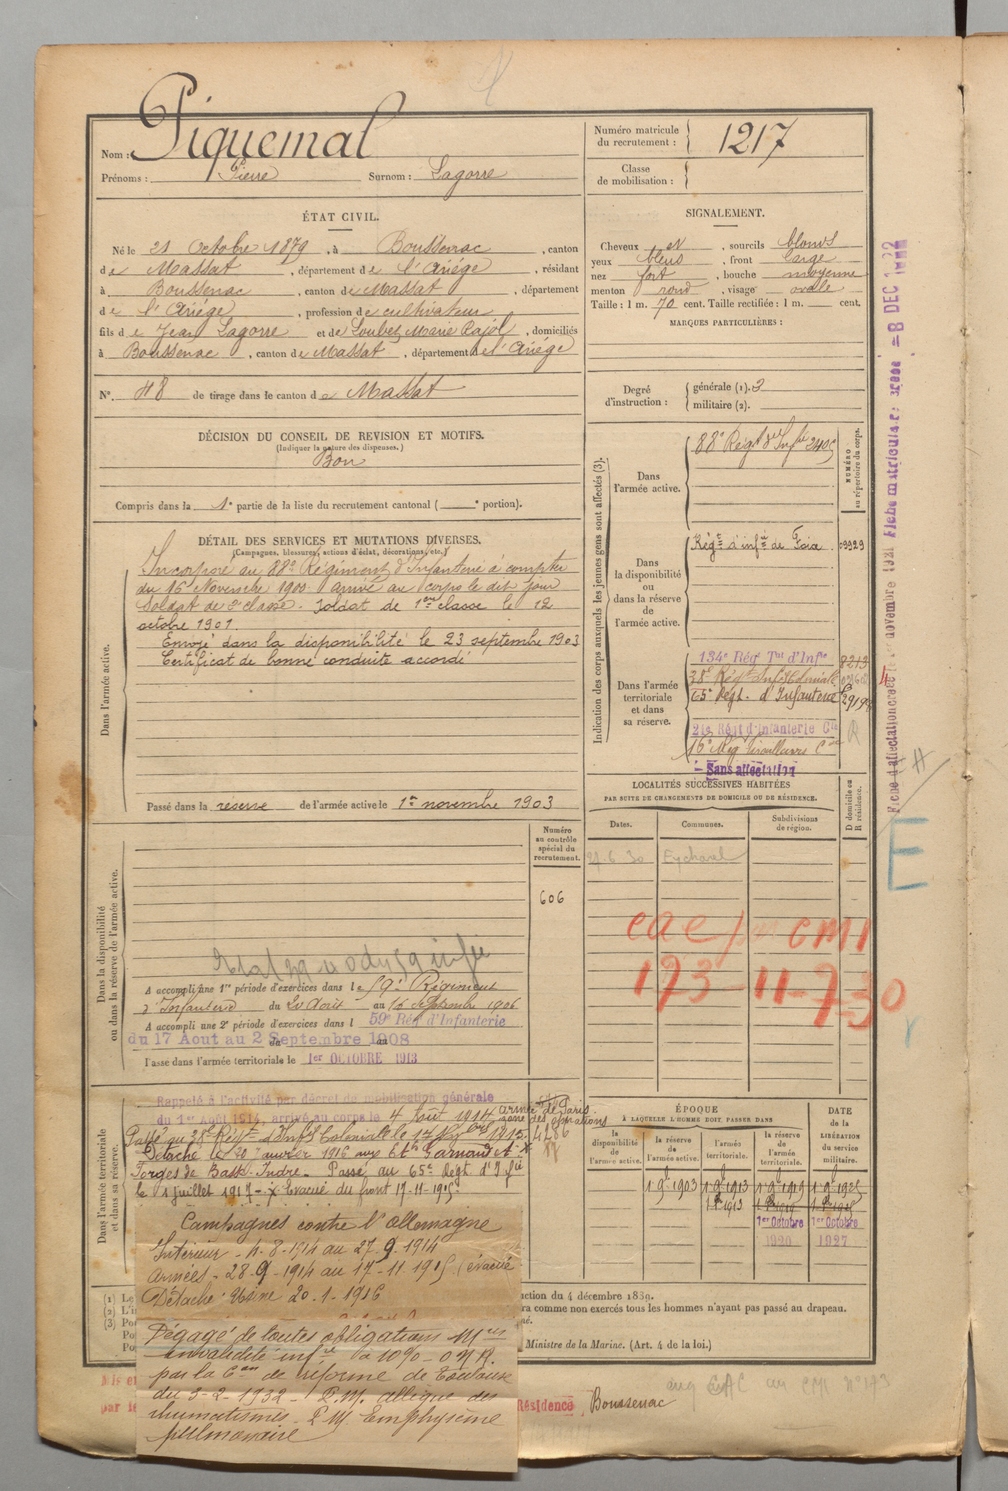 Nom : Piquemal
Prénoms : Pierre Surnom : Lagorre
Numéro matricule du recrutement : 1217
Classe de mobilisation :
ÉTAT CIVIL.
Né le 21 Octobre 1879, à Boussenac, canton
de Massat, département de l'Ariège, résidant
à Boussenac, canton de Massat, département
de l'Ariège, profession de cultivateur
fils de Jean Lagorre et de Loubet Marie Pajol, domiciliés
à Boussenac, canton de Massat, département de l'Ariège
N°. 48 de tirage dans le canton de Massat
SIGNALEMENT.
Cheveux et, sourcils blonds
yeux bleus, front large
nez fort, bouche moyenne
menton rond, visage ovale
Taille : 1 m. 70 cent. Taille rectifiée : 1 m. cent.
MARQUES PARTICULIÈRES :
Degré d'instruction : générale (1). 3
militaire (2).
DÉCISION DU CONSEIL DE REVISION ET MOTIFS.
(Indiquer la nature des dispenses.)
Bon
Compris dans la 1e partie de la liste du recrutement cantonal ( e portion).
DÉTAIL DES SERVICES ET MUTATIONS DIVERSES.
(Campagnes, blessures, actions d'éclat, décorations, etc.)
Dans l'armée active.
Incorporé au 88e Régiment d'Infanterie à compter
du 16 Novembre 1900 arrivé au corps le dit jour
Soldat de 2e classe. Soldat de 1ère classe le 12
octobre 1901.
Envoyé dans la disponibilité le 23 septembre 1903
Certificat de bonne conduite accordé
Passé dans la réserve de l'armée active le 1er novembre 1903
Indication des corps auxquels les jeunes gens sont affectés (3).
NUMÉRO au répertoire du corps.
Dans l'armée active.
88e Régt d'Infie
Dans la disponibilité ou dans la réserve de l'armée active.
Régt d'infie de Foix 09929
Dans l'armée territoriale et dans sa réserve.
134e Rég Tal d'Infie 8213
38e Régt Inf Coloniale
65e Régt. d'Infanterie
21e Régt d'Infanterie Cle
16e Rég Tirailleurs
Sans affectation
LOCALITÉS SUCCESSIVES HABITÉES
PAR SUITE DE CHANGEMENTS DE DOMICILE OU DE RÉSIDENCE.
D domicile ou R résidence.
Dates. Communes. Subdivisions de région.
27-6-30 Eycheil
cae CM1
173 11-7-30
E
Numéro au contrôle spécial du recrutement.
606
Dans la disponibilité ou dans la réserve de l'armée active.
A accompli une 1re période d'exercices dans le 59e Régiment
d'Infanterie du 20 Août au 16 Septembre 1906
A accompli une 2e période d'exercices dans l 59e Rég d'Infanterie
du 17 Aout au 2 Septembre 1908
Passé dans l'armée territoriale le 1er OCTOBRE 1913
Dans l'armée territoriale et dans sa réserve.
Rappelé à l'activité par décret de mobilisation générale
du 1er Août 1914, arrivé au corps le 4 Août 1914
armée de Paris zone des opérations
Passé au 38e Régt d'Infie Coloniale le
Détaché le 20 janvier 1916 aux Ets Garnaud et
Forges de Basse-Indre. Passé au 65e Régt d'Infie
le 1 juillet 1917 - x Evacué du front 17-11-915
Campagnes contre l'Allemagne
Intérieur - 4-8-1914 au 27.9.1914
Armées - 28-9-1914 au 17-11 1915 (évacué
Détaché Usine 20-1-1916
Dégagé de toutes obligations Mres
invalidité infre à 10%
par la Con de réforme de Toulouse
du 3-2-1932 - P.M. allègue des
rhumatismes. P.M. Emphysème
pulmonaire
ÉPOQUE
À LAQUELLE L'HOMME DOIT PASSER DANS
DATE DE LA LIBÉRATION du service militaire.
la disponibilité de l'armée active. la réserve de l'armée active. l'armée territoriale. la réserve de l'armée territoriale.
1-9bre 1903 1-9bre 1913 1-9bre 1919 1-9bre 1925
1er Octobre 1er Octobre
1920 1927
(1) Le
(2) L'in
(3) Po
ction du 4 décembre 1889.
ra comme non exercés tous les hommes n'ayant pas passé au drapeau.
Ministre de la Marine. (Art. 4 de la loi.)
Résidence Boussenac